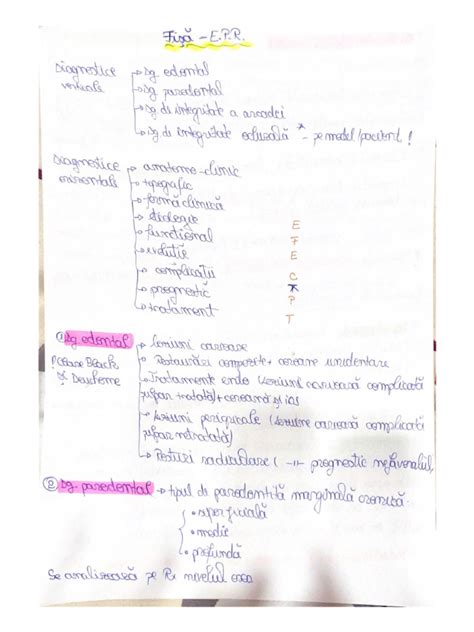 Fișă - E.P.R.
Diagnostice verticale
→ dg. odontal
→ dg. parodontal
→ dg de integritate a arcadei
→ dg de integritate ocluzală * - pe model/pacient!
Diagnostice orizontale
→ anatomo-clinic
→ topografic
→ formă clinică
→ etiologic E
→ funcțional F
→ evoluție E
→ complicații C
→ prognostic P
→ tratament T
① Dg. odontal
→ leziuni carioase
→ Restaurări compozite + coroane unidentare
→ Tratamente endo (leziuni carioasă complicată
tratată) + coroană
→ Leziuni periapicale (leziune carioasă complicată
netratată)
→ Resturi radiculare ( -"- prognostic nefavorabil
! Clase Black
și Dechaume
② Dg. parodontal → tipul de parodontită marginală cronică:
• superficială
• medie
• profundă
Se analizează pe Rx nivelul